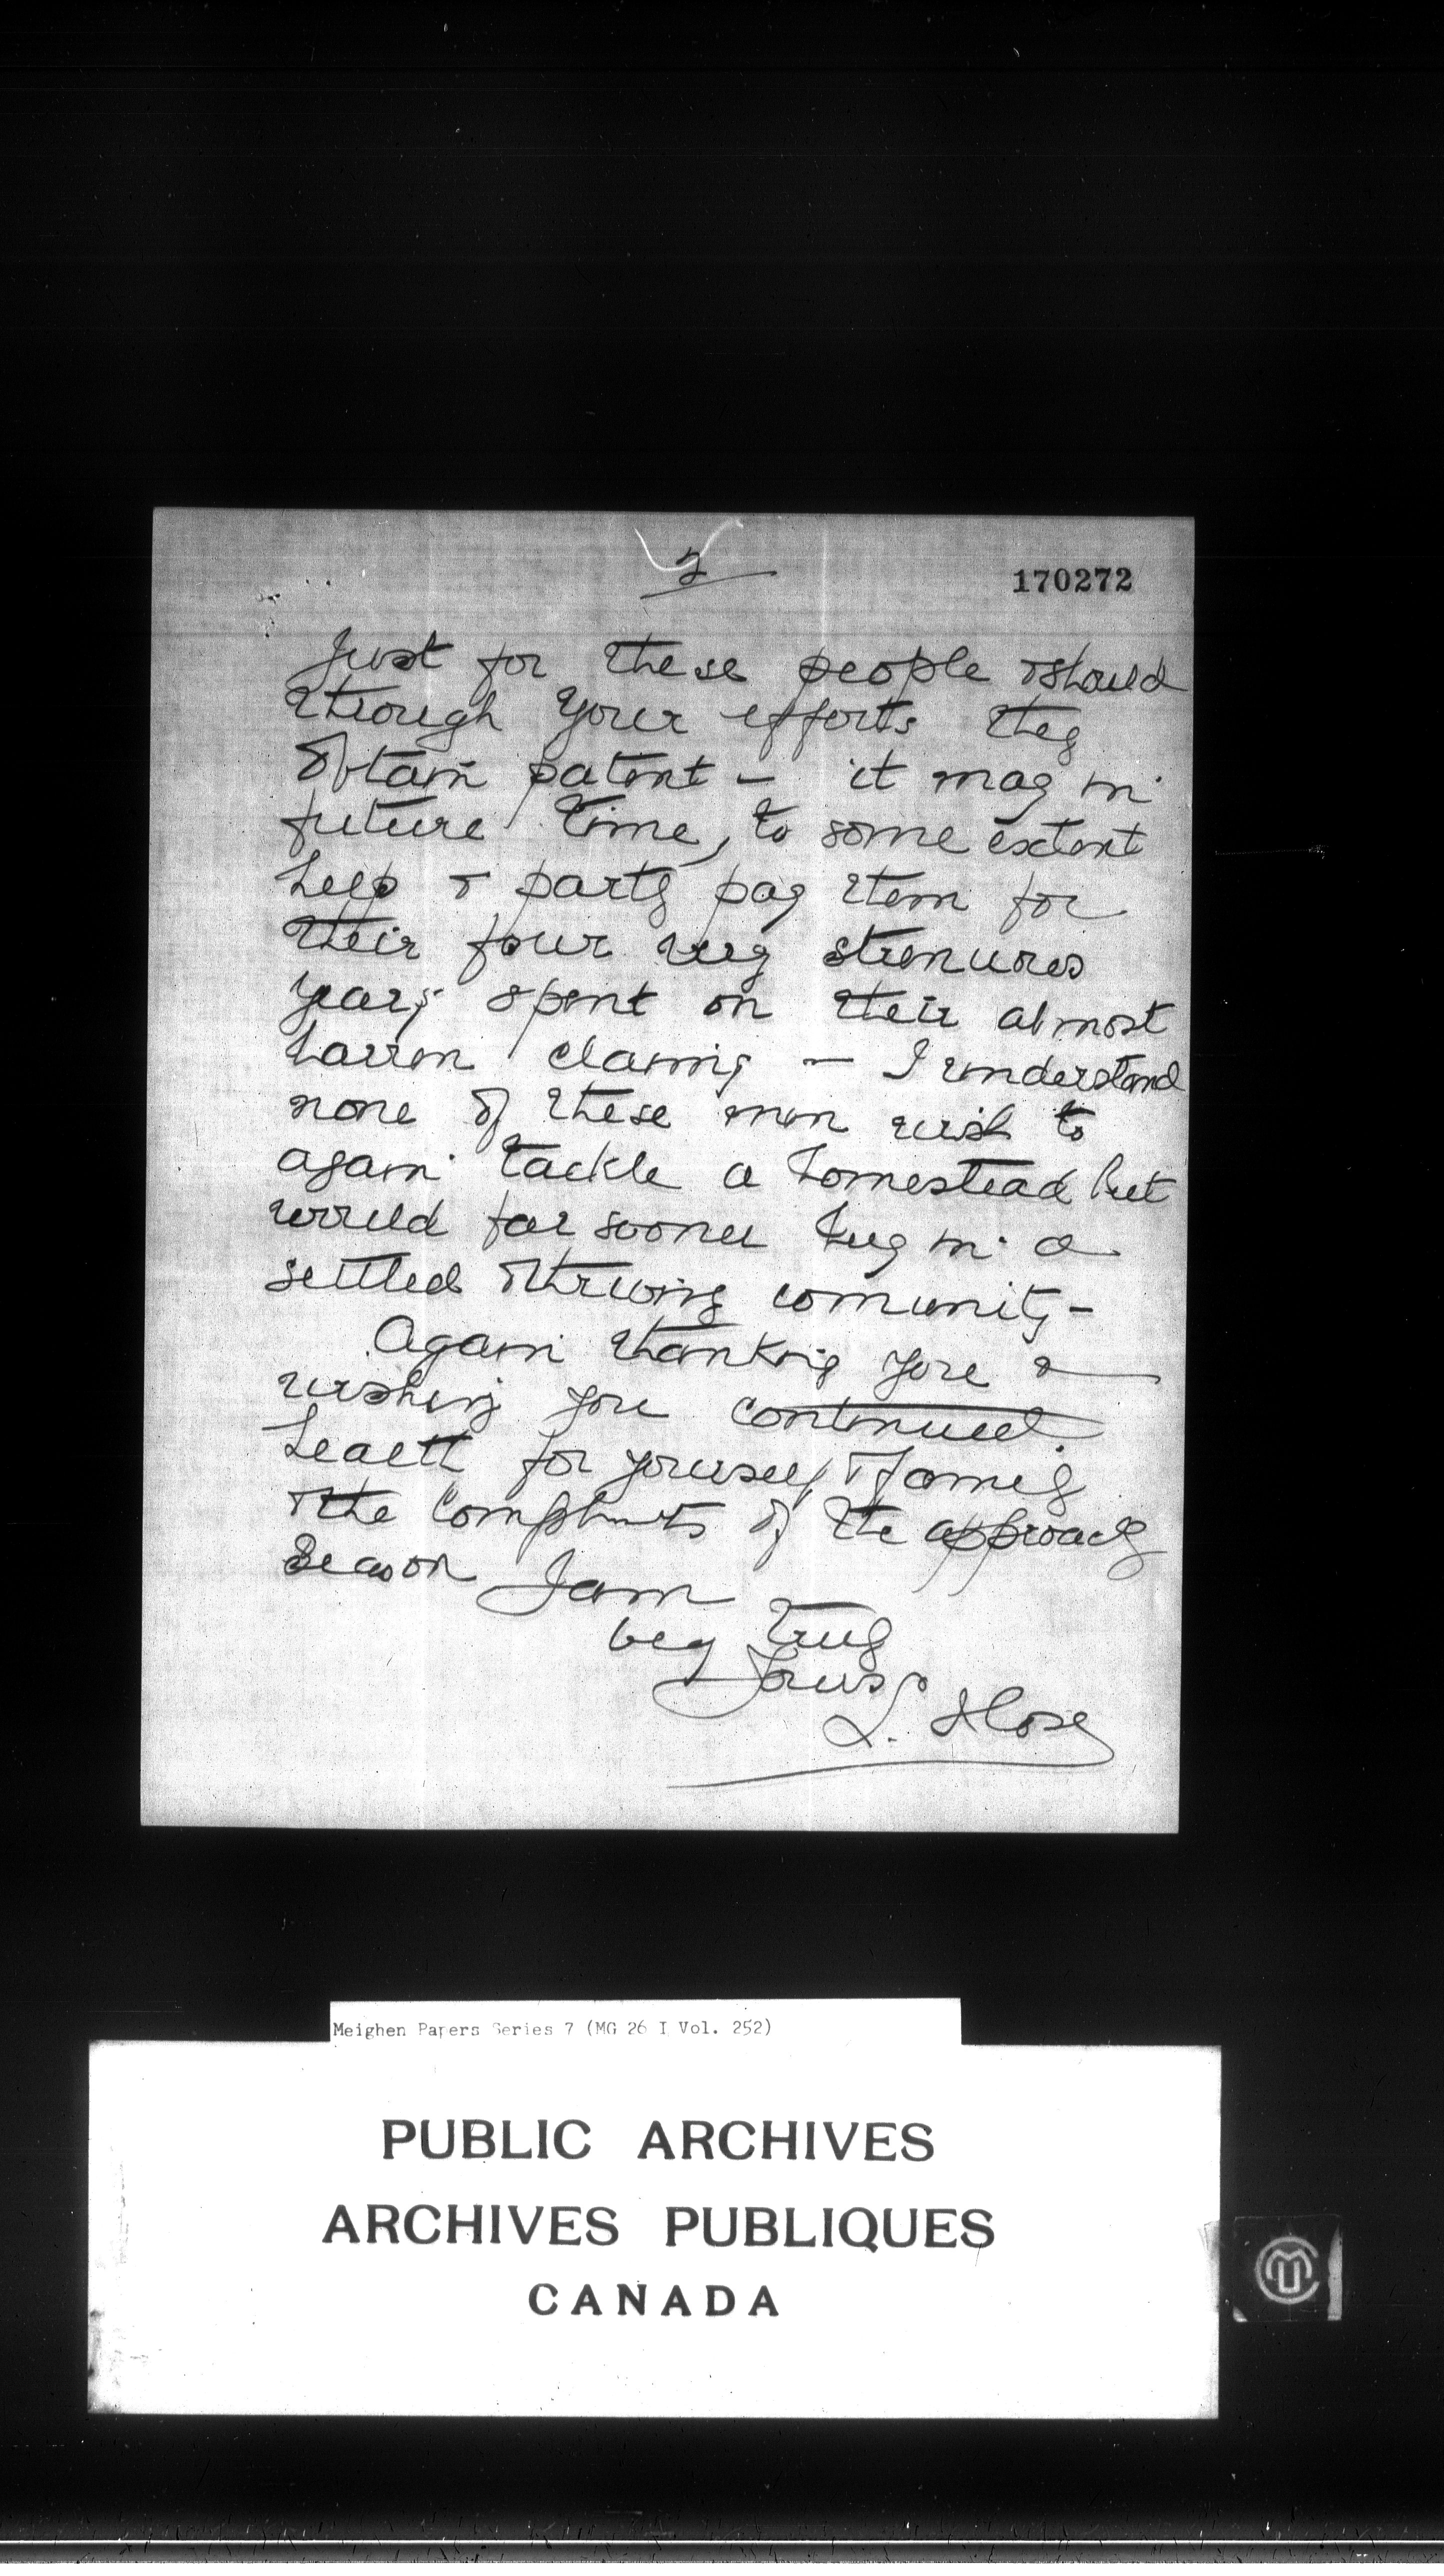 2
170272
just for these people & should
through your efforts they
obtain patent - it may in
future time, to some extent
help & partly pay them for
their four very strenuous
years spent on their almost
barren claims - I understand
none of these men wish to
again tackle a homestead but
would far sooner buy in a
settled & thriving comunity -
Again thanking you &
wishing you continued
health for yourself & family
& the compliments of the approachg
season I am
very truly
yours
L.
Meighen Papers Series 7 (MG 26 I Vol. 252)
PUBLIC ARCHIVES
ARCHIVES PUBLIQUES
CANADA